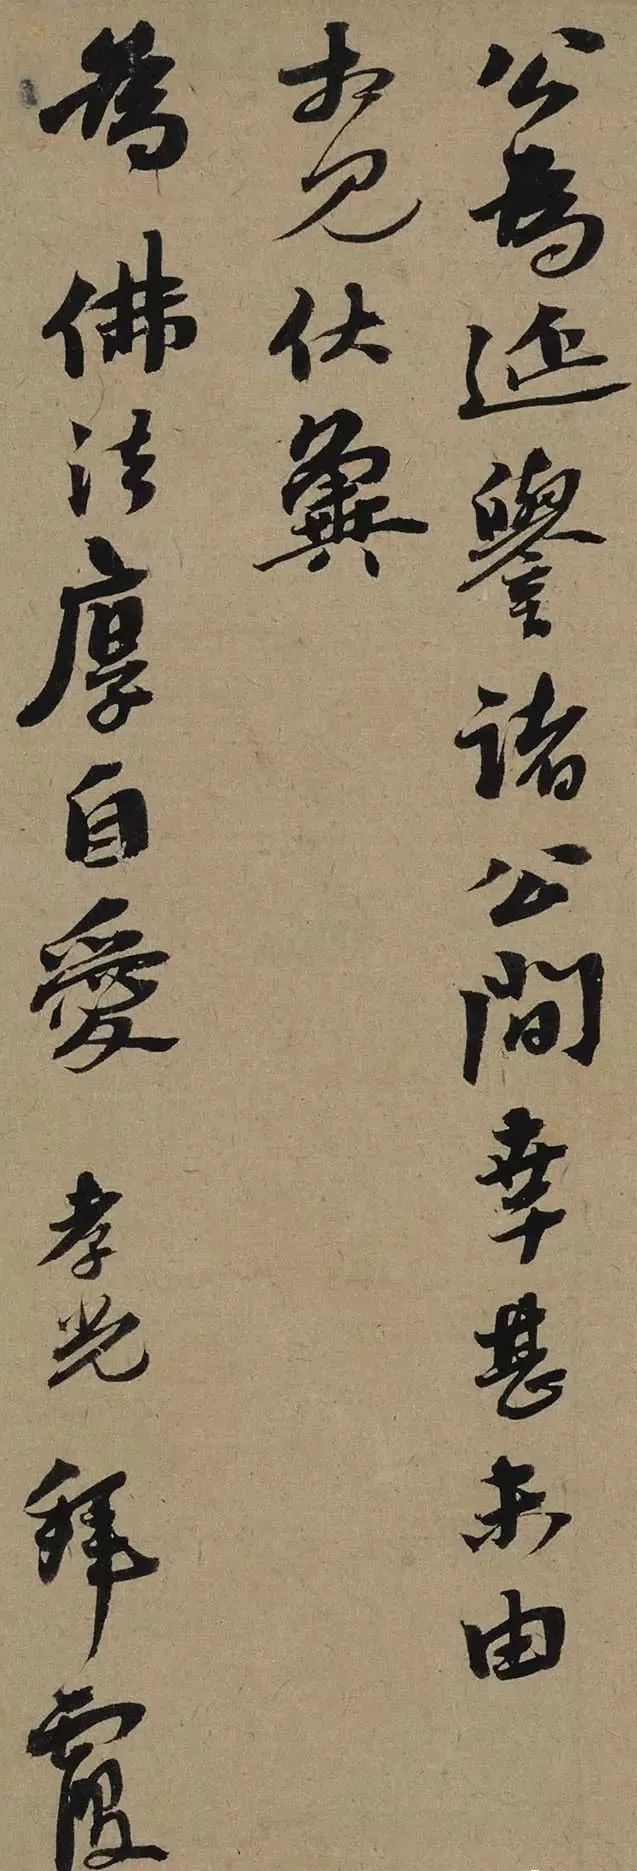 公為延譽諸公間幸甚未由
相見伏冀
為佛法厚自愛 孝光拜覆